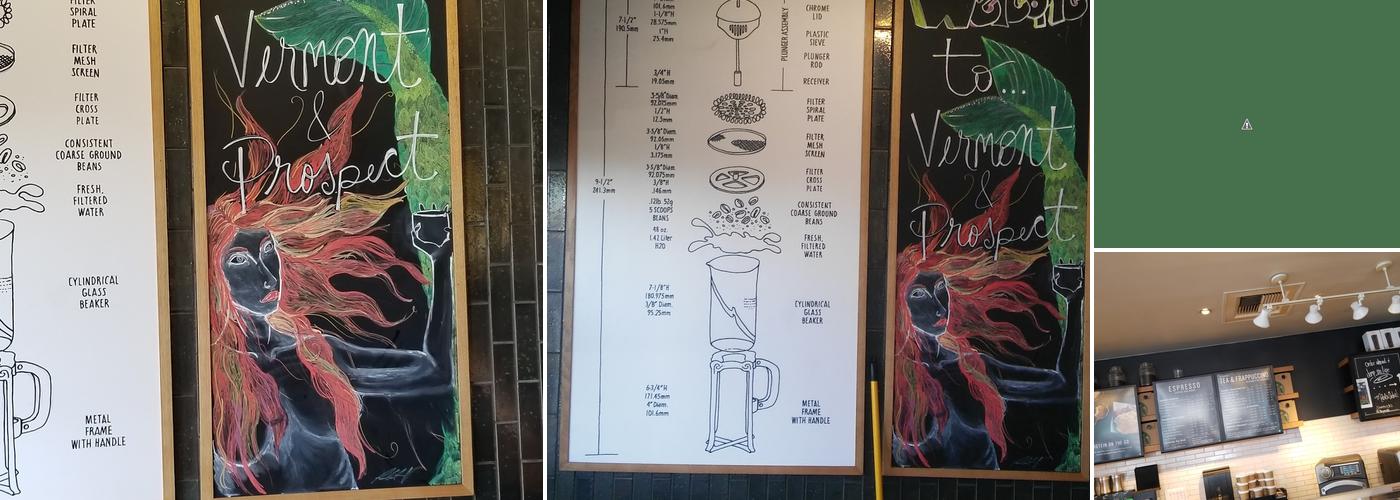 SPIRAL
PLATE
FILTER
MESH
SCREEN
FILTER
CROSS
PLATE
CONSISTENT
COARSE GROUND
BEANS
FRESH,
FILTERED
WATER
CYLINDRICAL
GLASS
BEAKER
METAL
FRAME
WITH HANDLE
Vermont
&
Prospect
7-1/2"
190.5mm
101.6mm
1-1/8"H
28.575mm
1"H
25.4mm
3/4"H
19.05mm
3-5/8" Diam.
92.075mm
1/2"H
12.5mm
3-5/8" Diam.
92.05mm
1/8"H
3.175mm
3-5/8" Diam.
92.075mm
3/8"H
.146mm
9-1/2"
241.3mm
.12lb. 52g
5 SCOOPS
BEANS
48 oz.
1.42 Liter
H2O
7-1/8"H
180.975mm
3/8" Diam.
95.25mm
6-3/4"H
171.45mm
4" Diam.
101.6mm
PLUNGER ASSEMBLY
CHROME
LID
PLASTIC
SIEVE
PLUNGER
ROD
RECEIVER
FILTER
SPIRAL
PLATE
FILTER
MESH
SCREEN
FILTER
CROSS
PLATE
CONSISTENT
COARSE GROUND
BEANS
FRESH,
FILTERED
WATER
CYLINDRICAL
GLASS
BEAKER
METAL
FRAME
WITH HANDLE
to...
Vermont
&
Prospect
ESPRESSO
TEA & FRAPPUCCINO